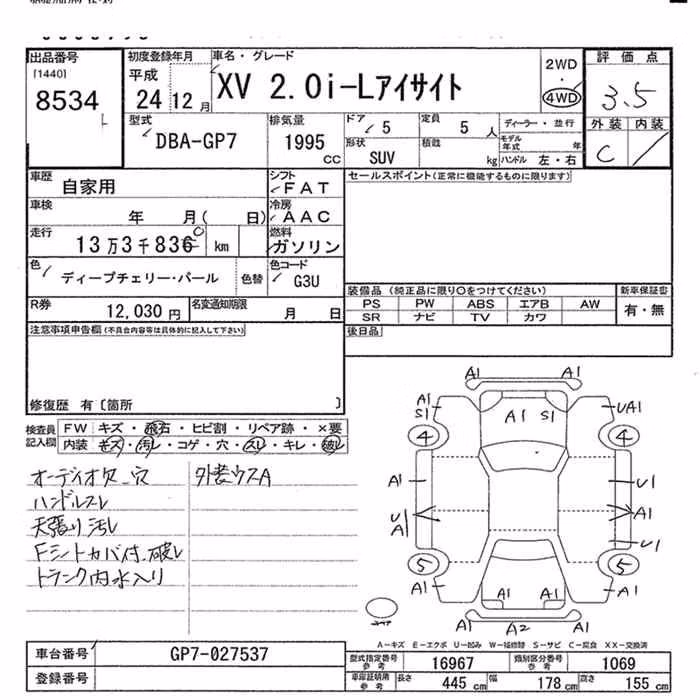 出品番号
[1440]
8534
初度登録年月
平成
24 12 月
車名・グレード
XV 2.0i-Lアイサイト
2WD
・
4WD
評価点
3.5
外装 内装
C /
型式
DBA-GP7
排気量
1995
CC
ドア
5
定員
5 人
ディーラー・並行
形状
SUV
積載
kg
モデル年式
年
ハンドル 左・右
車歴
自家用
シフト
FAT
セールスポイント(正常に機能するものに限ります)
車検
年 月( 日)
冷房
AAC
走行
13万3千836 km
燃料
ガソリン
色
ディープチェリー・パール
色替
色コード
G3U
装備品 (純正品に限り○をつけてください)
新車保証書
PS PW ABS エアB AW
有・無
SR ナビ TV カワ
R券
12,030 円
名変通知期限
月 日
後日品
注意事項申告欄(不具合内容等は具体的に記入して下さい)
修復歴 有〔箇所 〕
検査員
記入欄
FW キズ・飛石・ヒビ割・リペア跡・×要
内装 キズ・汚レ・コゲ・穴・スレ・キレ・破レ
オーディオ欠、穴
外装ウスA
ハンドルスレ
天張り汚レ
Fシートカバー付、破レ
トランク内水入り
A1 A1
A1
S1
A1 S1
UA1
4 4
A1
U1
U
A1
A1
U1
5 5
A1
A1 A1
A1
A1 A2 A1
A-キズ E-エクボ U-凹み W-補修替 S-サビ C-腐食 XX-交換済
車台番号
GP7-027537
登録番号
型式指定番号
参考
16967
類別区分番号
参考
1069
車庫証明用
参考
長さ 445 cm
幅 178 cm
高さ 155 cm